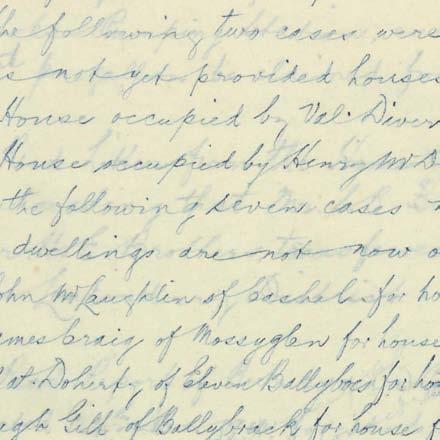 the following two cases were
is not yet provided houses
House occupied by Val. Diver
House occupied by Henry McD
the following seven cases
dwellings are not now o
John McLaughlin of Cashel for ho
ames Craig of Mossyglen for house
at. Doherty of Eleven Ballyboes for ho
ugh Gill of Ballybrack for house f